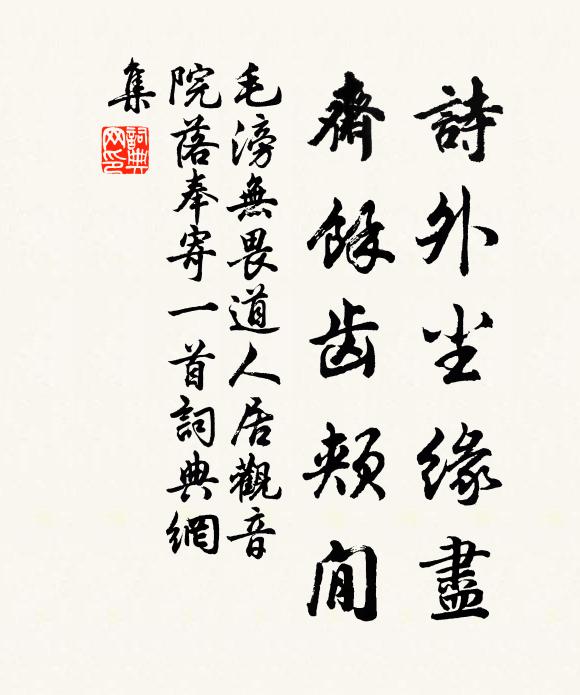 詩外尘緣盡
齋餘齿頰閒
毛滂無畏道人居觀音
院落奉寄一首詞典網
集
詞典
网印